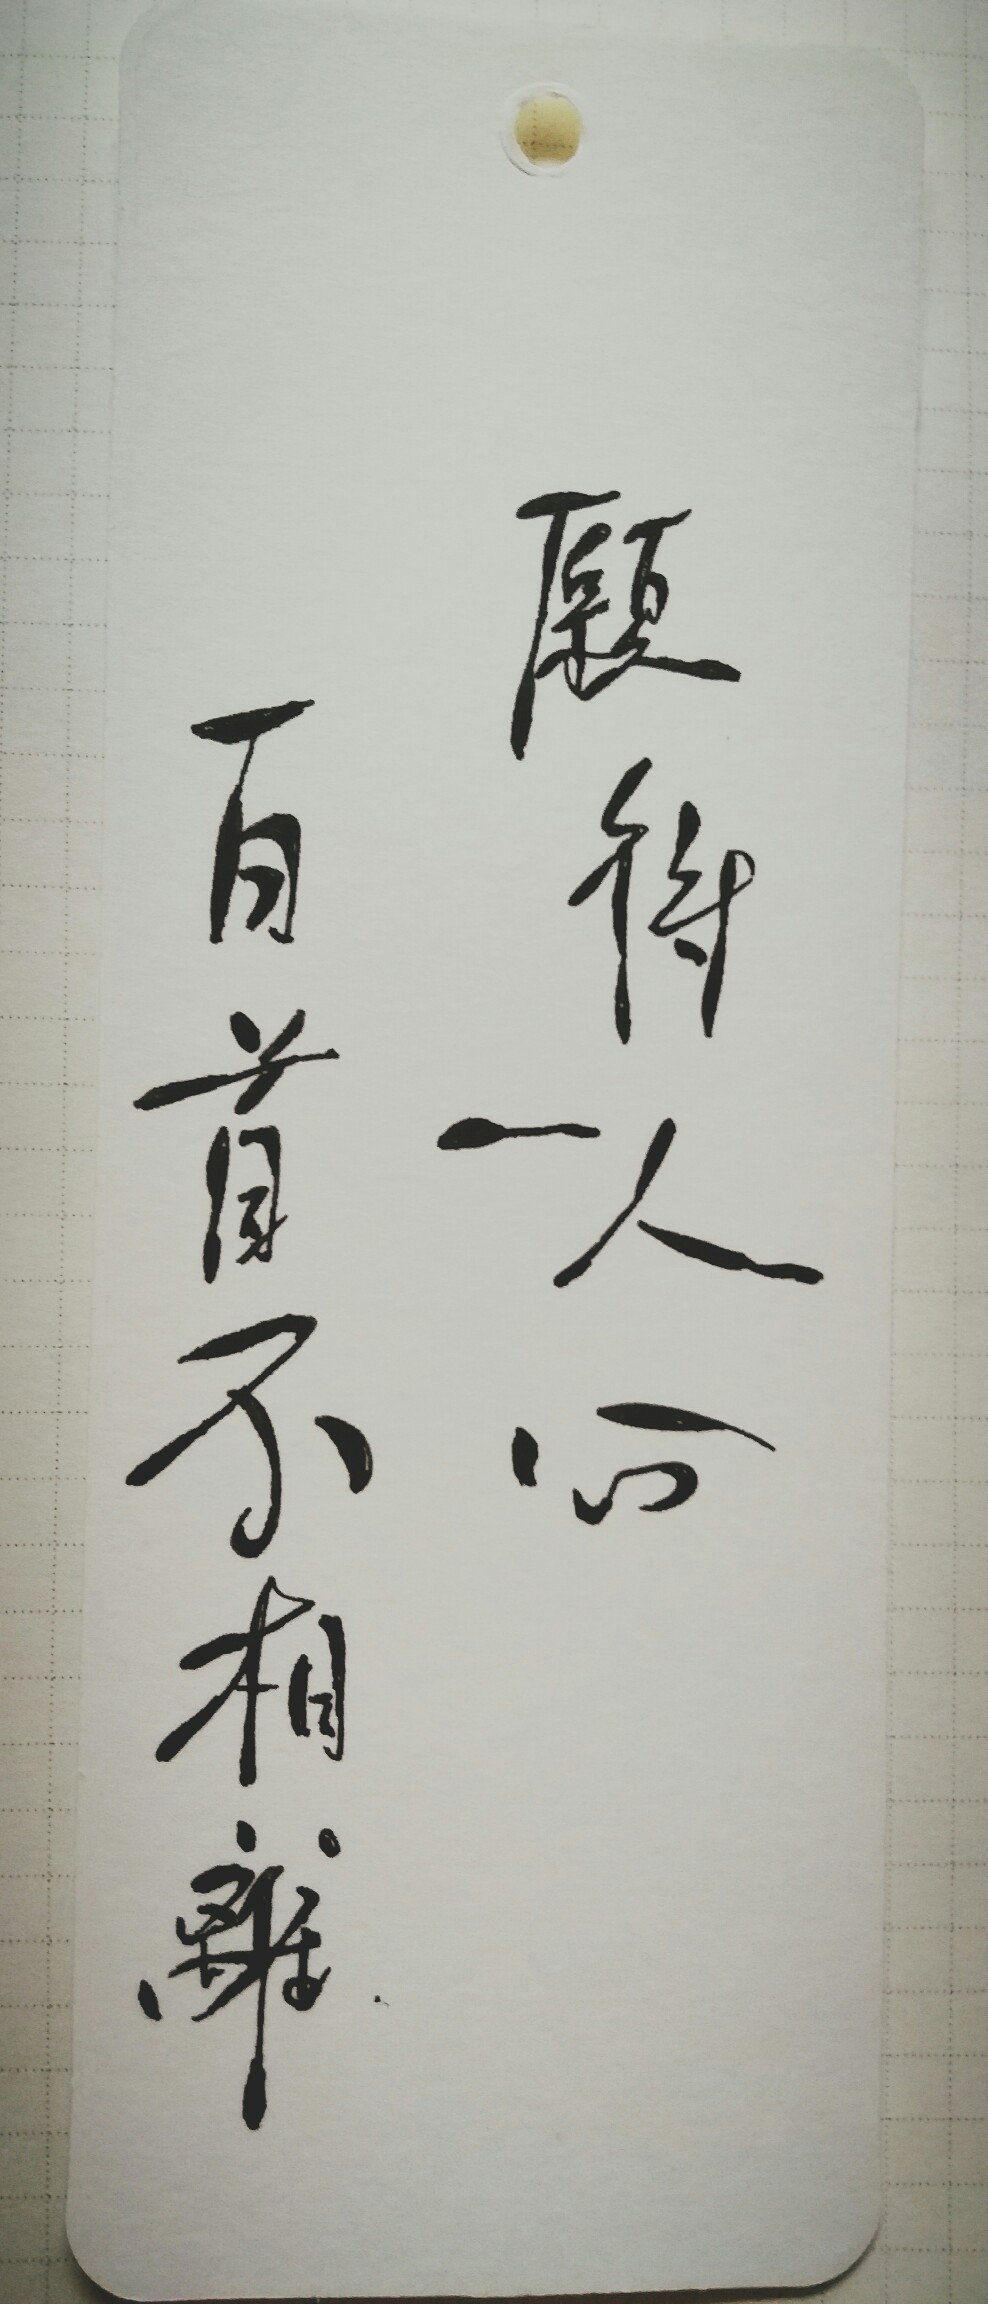 願得一人心
百首不相離